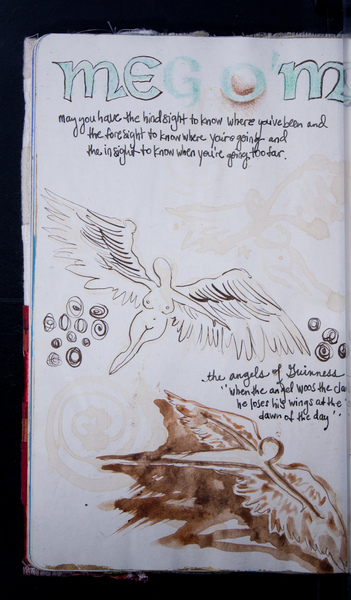 MEG O'M
may you have the hindsight to know where you've been and
the foresight to know where you're going and
the insight to know when you're going too far.
the angels of Guinness
"when the angel woos the cla
he loses his wings at the
dawn of the day".